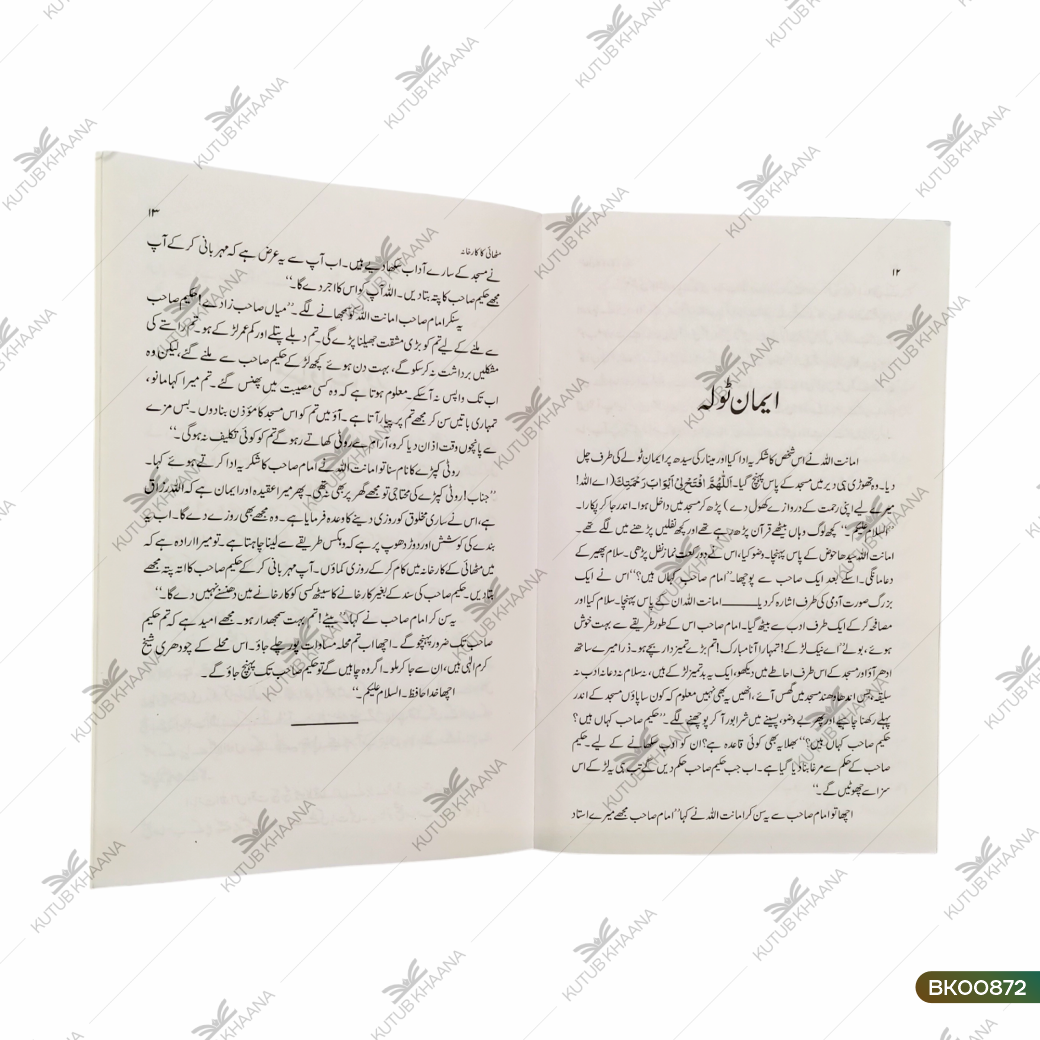 ۱۲
ایمان ٹولہ
امانت اللہ نے اس شخص کا شکریہ ادا کیا اور مینار کی سیدھ پر ایمان ٹولے کی طرف چل
دیا۔ وہ تھوڑی ہی دیر میں مسجد کے پاس پہنچ گیا۔ اَللّٰهُمَّ افْتَحْ لِيْ اَبْوَابَ رَحْمَتِكَ (اے اللہ!
میرے لیے اپنی رحمت کے دروازے کھول دے) پڑھ کر مسجد میں داخل ہوا۔ اندر جا کر پکارا۔
"السلام علیکم۔" کچھ لوگ وہاں بیٹھے قرآن پڑھ رہے تھے اور کچھ نفلیں پڑھنے میں لگے تھے۔
امانت اللہ سیدھا حوض کے پاس پہنچا۔ وضو کیا، اس نے دو رکعت نماز نفل پڑھی۔ سلام پھیر کے
دعا مانگی۔ اسکے بعد ایک صاحب سے پوچھا۔ "امام صاحب کہاں ہیں؟" اس نے ایک
بزرگ صورت آدمی کی طرف اشارہ کر دیا۔ ــــــ امانت اللہ ان کے پاس پہنچا۔ سلام کیا اور
مصافحہ کر کے ایک طرف ادب سے بیٹھ گیا۔ امام صاحب اس کے طور طریقے سے بہت خوش
ہوئے، بولے "اے نیک لڑکے! تمہارا آنا مبارک! تم بڑے تمیزدار بچے ہو۔ ذرا میرے ساتھ
ادھر آؤ اور مسجد کے اس طرف احاطے میں دیکھو، ایک یہ بدتمیز لڑکے ہیں، نہ سلام نہ دعا نہ ادب نہ
سلیقہ، بس اندھا دھند مسجد میں گھس آئے، انھیں یہ بھی نہیں معلوم کہ کون سا پاؤں مسجد کے اندر
پہلے رکھنا چاہیے اور پھر بے وضو، پسینے میں شرابور آ کر پوچھنے لگے۔ "حکیم صاحب کہاں ہیں؟
حکیم صاحب کہاں ہیں؟" بھلا یہ بھی کوئی قاعدہ ہے؟ ان کو ادب سکھانے کے لیے حکیم
صاحب کے حکم سے مرغا بنا دیا گیا ہے۔ اب جب حکیم صاحب حکم دیں گے تب ہی یہ لڑکے اس
سزا سے چھوٹیں گے۔"
اچھا تو امام صاحب سے یہ سن کر امانت اللہ نے کہا "امام صاحب مجھے میرے استاد
۱۳
مٹھائی کا کارخانہ
نے مسجد کے سارے آداب سکھا دیے ہیں۔ اب آپ سے یہ عرض ہے کہ مہربانی کر کے آپ
مجھے حکیم صاحب کا پتہ بتا دیں۔ اللہ آپ کو اس کا اجر دے گا۔"
یہ سنکر امام صاحب امانت اللہ کو سمجھانے لگے۔ "میاں صاحب زادے! حکیم صاحب
سے ملنے کے لیے تم کو بڑی مشقت جھیلنا پڑے گی۔ تم دبلے پتلے اور کم عمر لڑکے ہو۔ تم راستے کی
مشکلیں برداشت نہ کر سکو گے، بہت دن ہوئے کچھ لڑکے حکیم صاحب سے ملنے گئے، لیکن وہ
اب تک واپس نہ آ سکے۔ معلوم ہوتا ہے کہ وہ کسی مصیبت میں پھنس گئے۔ تم میرا کہا مانو،
تمہاری باتیں سن کر مجھے تم پر پیار آتا ہے۔ آؤ میں تم کو اس مسجد کا مؤذن بنا دوں۔ بس مزے
سے پانچوں وقت اذان دیا کرو، آرام سے روٹی کھاتے رہو گے تم کو کوئی تکلیف نہ ہوگی۔"
روٹی کپڑے کا نام سنا تو امانت اللہ نے امام صاحب کا شکریہ ادا کرتے ہوئے کہا۔
"جناب! روٹی کپڑے کی محتاجی تو مجھے گھر پر بھی نہ تھی۔ پھر میرا عقیدہ اور ایمان ہے کہ اللہ رزّاق
ہے، اس نے ساری مخلوق کو روزی دینے کا وعدہ فرمایا ہے۔ وہ مجھے بھی روزے دے گا۔ اب یہ
بندے کی کوشش اور دوڑ دھوپ پر ہے کہ وہ کس طریقے سے لینا چاہتا ہے۔ تو میرا ارادہ ہے کہ
میں مٹھائی کے کارخانہ میں کام کر کے روزی کماؤں۔ آپ مہربانی کر کے حکیم صاحب کا اتہ پتہ مجھے
بتا دیں۔ حکیم صاحب کی سند کے بغیر کارخانے کا سیٹھ کسی کو کارخانے میں دھنسنے نہیں دے گا۔"
یہ سن کر امام صاحب نے کہا: "بیٹے! تم بہت سمجھدار ہو۔ مجھے امید ہے کہ تم حکیم
صاحب تک ضرور پہنچو گے۔ اچھا اب تم محلہ مساوات پور چلے جاؤ۔ اس محلے کے چودھری شیخ
کرم الٰہی ہیں، ان سے جا کر ملو۔ اگر وہ چاہیں گے تو حکیم صاحب تک پہنچ جاؤ گے۔
اچھا خدا حافظ۔ السلام علیکم۔"
KUTUB KHAANA
BK00872